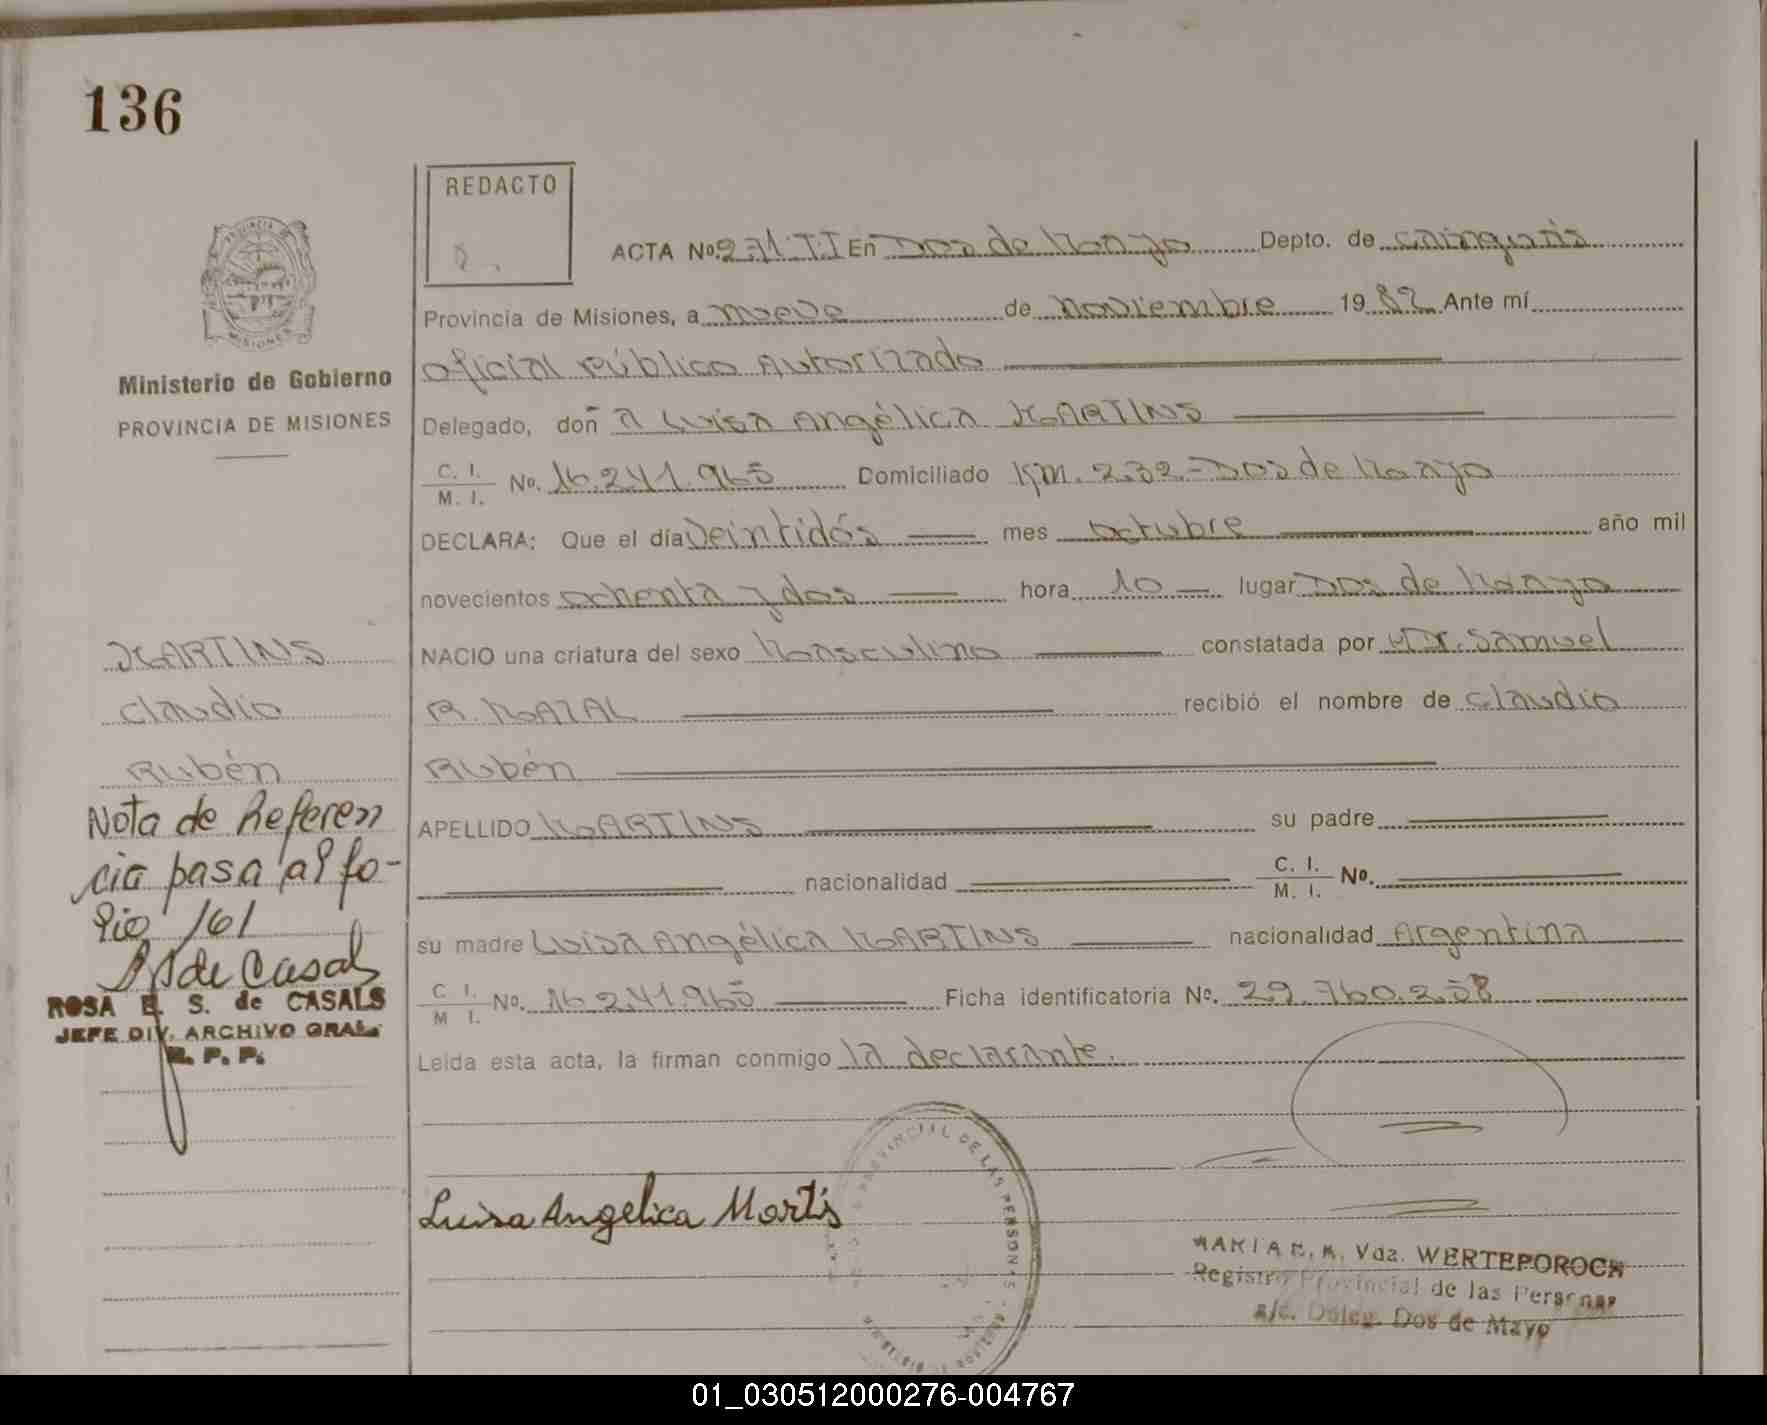 136
REDACTO
ACTA Nº 271.T.I En Dos de Mayo Depto. de Cainguás
Provincia de Misiones, a nueve de Noviembre 1982 Ante mí
Oficial Público Autorizado
Delegado, doña Luisa Angélica MARTINS
C. I.
M. I. Nº. 16.241.965 Domiciliado Km. 232 - Dos de Mayo
DECLARA: Que el día Veintidós mes octubre año mil
novecientos ochenta y dos hora 10 lugar Dos de Mayo
NACIO una criatura del sexo Masculino constatada por Dr. Samuel
R. recibió el nombre de Claudio
Rubén
APELLIDO MARTINS su padre
nacionalidad C. I.
M. I. Nº.
su madre Luisa Angélica MARTINS nacionalidad Argentina
C. I.
M. I. Nº. 16.241.965 Ficha identificatoria Nº. 29.760.258
Leida esta acta, la firman conmigo la declarante.
Luisa Angelica Martis
MARIA R. Vda. WERTEPOROCH
Registro Provincial de las Personas
a/c. Deleg. Dos de Mayo
PROVINCIAL DE LAS PERSONAS
PROVINCIA DE
MISIONES
Ministerio de Gobierno
PROVINCIA DE MISIONES
MARTINS
Claudio
Rubén
Nota de Referen
cia pasa al fo-
lio 161
de Casals
ROSA E. S. de CASALS
JEFE DIV. ARCHIVO GRAL.
R. P. P.
01_030512000276-004767